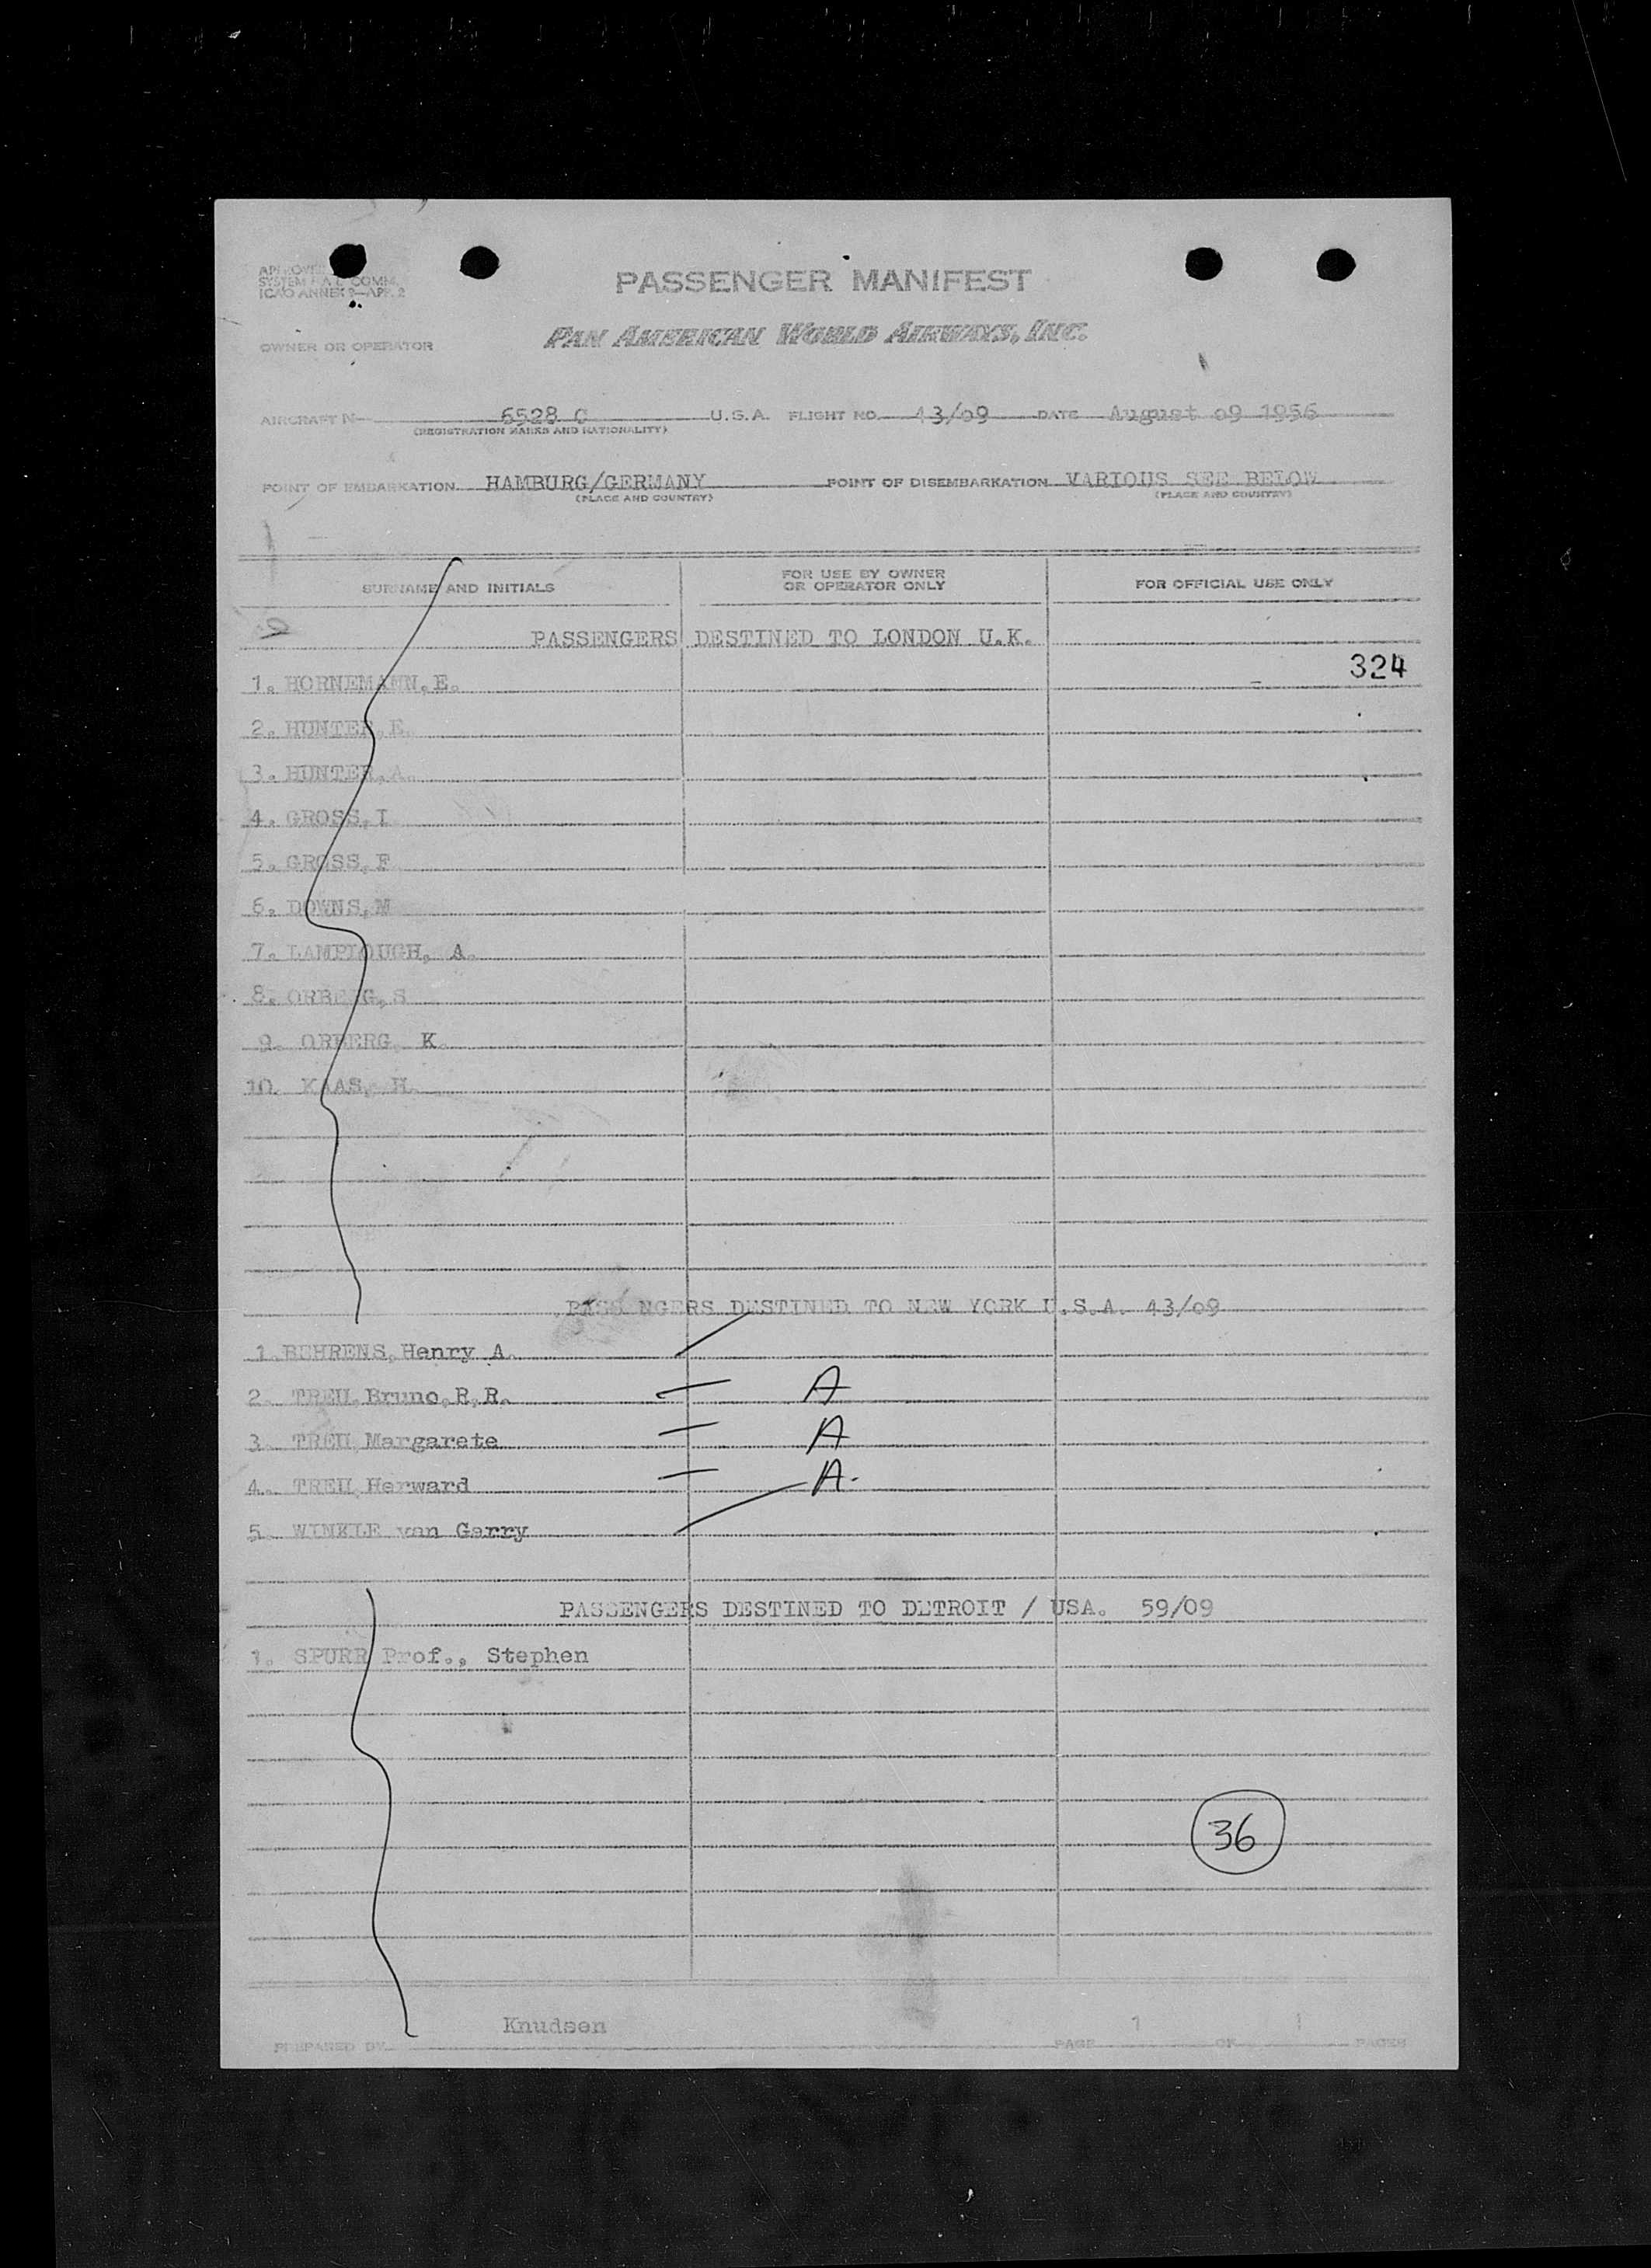 PASSENGER MANIFEST
SYSTEM COMM.
ICAO ANNEX 9—APP. 2
OWNER OR OPERATOR
PAN AMERICAN WORLD AIRWAYS, INC.
AIRCRAFT N 6528 C U.S.A. FLIGHT NO. 43/09 DATE August 09 1956
(REGISTRATION MARKS AND NATIONALITY)
POINT OF EMBARKATION HAMBURG/GERMANY POINT OF DISEMBARKATION VARIOUS SEE BELOW
(PLACE AND COUNTRY) (PLACE AND COUNTRY)
SURNAME AND INITIALS FOR USE BY OWNER OR OPERATOR ONLY FOR OFFICIAL USE ONLY
PASSENGERS DESTINED TO LONDON U.K.
324
1. HORNEMANN, E.
2. HUNTER, E.
3. HUNTER, A.
4. GROSS, I
5. GROSS, F
6. DOWNS, M
7. LAMPLOUGH, A.
8. ORBERG, S
9. ORBERG, K.
10. KAAS, H.
PASSENGERS DESTINED TO NEW YORK U.S.A. 43/09
1. BEHRENS, Henry A.
2. TREU, Bruno, R, R. A
3. TREU, Margarete A
4. TREU, Herward A.
5. WINKLE van Garry
PASSENGERS DESTINED TO DETROIT / USA. 59/09
1. SPURR Prof., Stephen
36
Knudsen
PREPARED BY PAGE 1 OF 1 PAGES